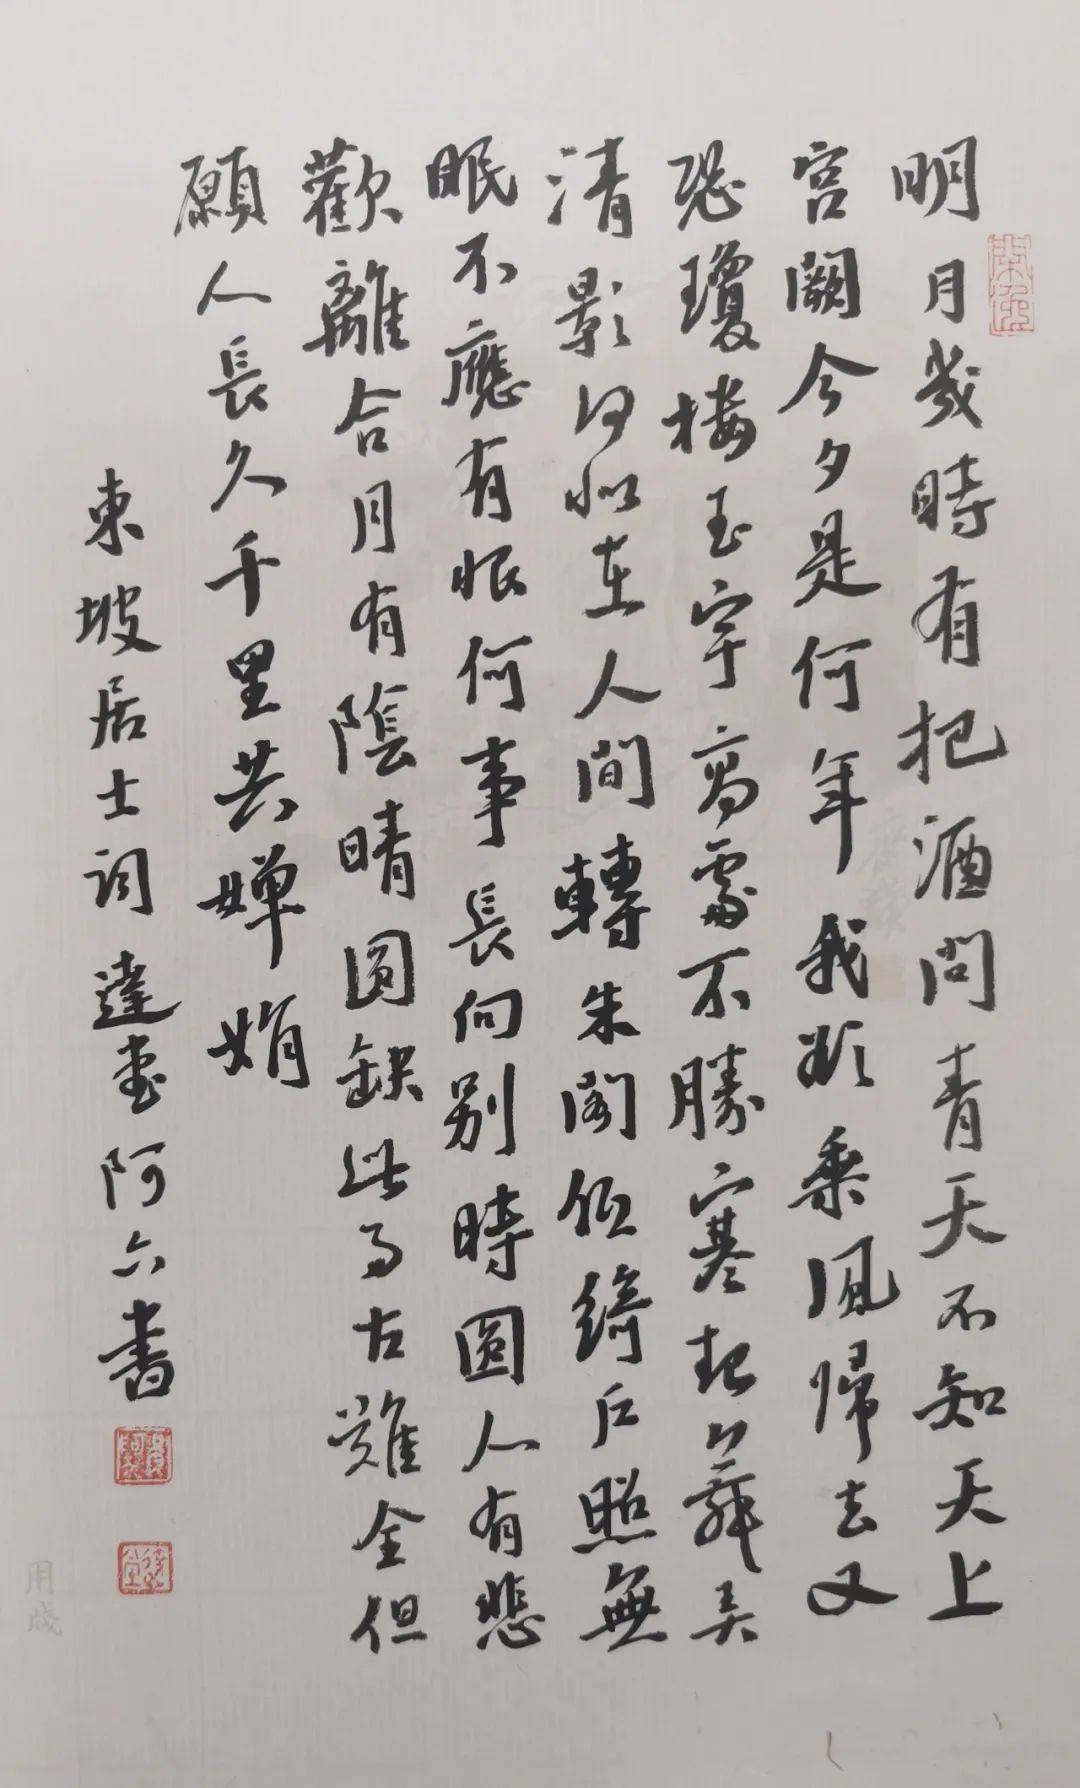 明月幾時有把酒問青天不知天上
宮闕今夕是何年我欲乘風歸去又
恐瓊樓玉宇高處不勝寒起舞弄
清影何似在人間轉朱閣低綺戶照無
眠不應有恨何事長向別時圓人有悲
歡離合月有陰晴圓缺此事古難全但
願人長久千里共嬋娟
東坡居士詞 達堂阿六書